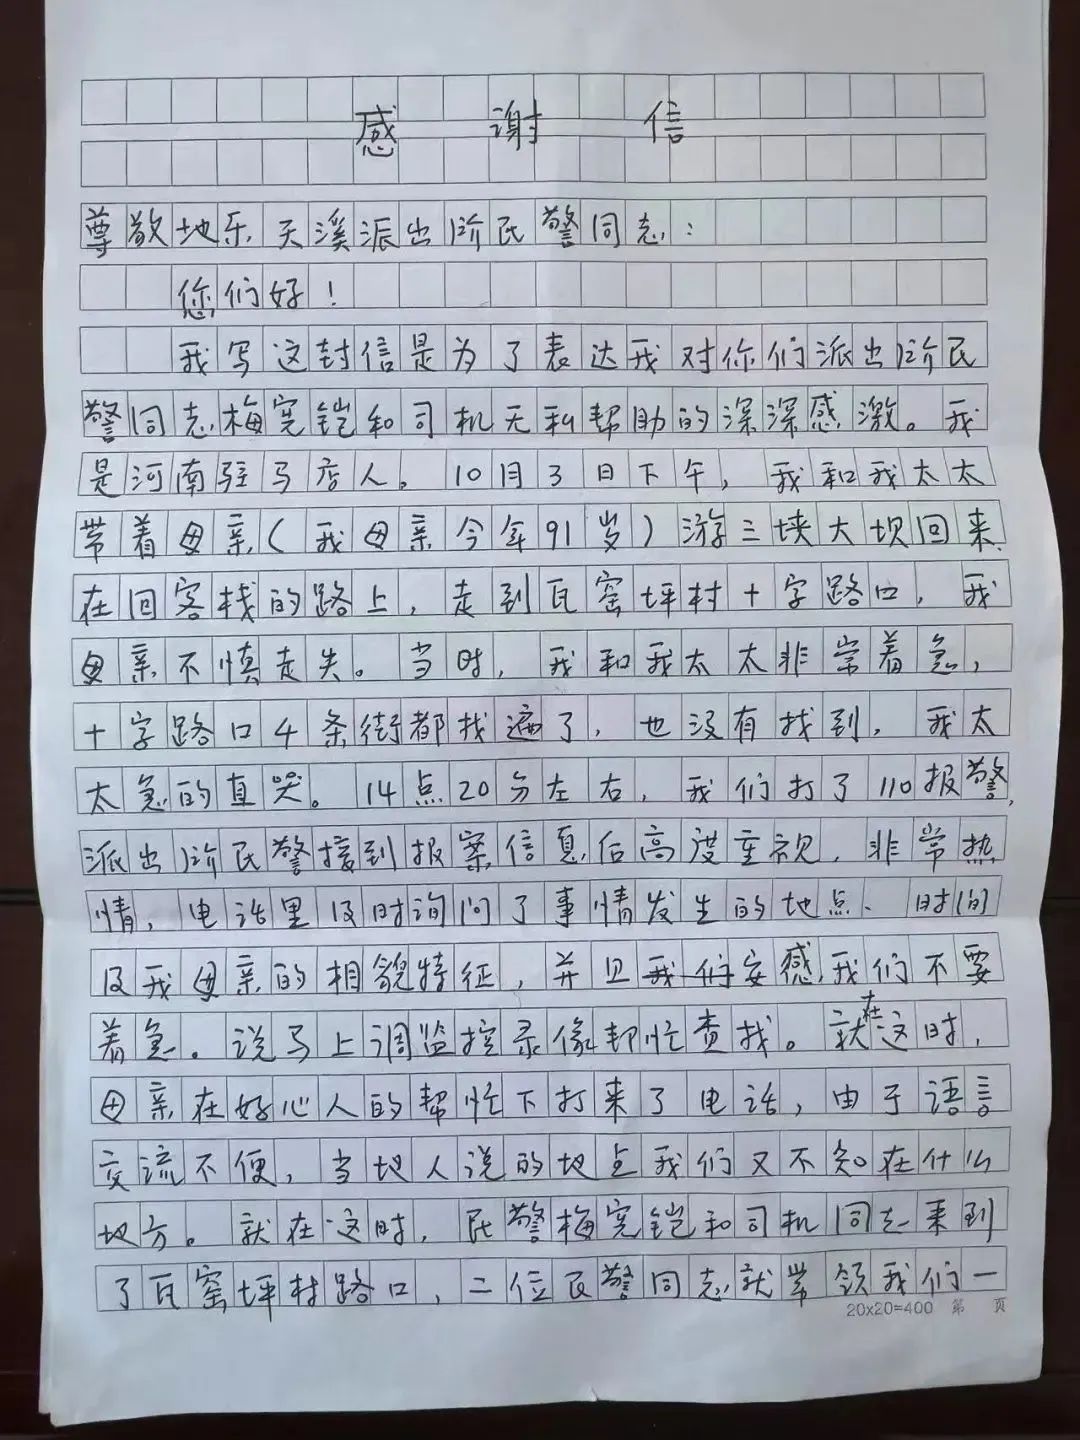 感谢信
尊敬地乐天溪派出所民警同志：
您们好！
我写这封信是为了表达我对你们派出所民
警同志梅宽铠和司机无私帮助的深深感激。我
是河南驻马店人。10月3日下午，我和我太太
带着母亲(我母亲今年91岁)游三峡大坝回来
在回客栈的路上，走到瓦窑坪村十字路口，我
母亲不慎走失。当时，我和我太太非常着急，
十字路口4条街都找遍了，也没有找到，我太
太急的直哭。14点20分左右，我们打了110报警，
派出所民警接到报案信息后高度重视，非常热
情，电话里及时询问了事情发生的地点、时间
及我母亲的相貌特征，并且我们安慰，我们不要
着急。说马上调监控录像帮忙查找。就在这时，
母亲在好心人的帮忙下打来了电话，由于语言
交流不便，当地人说的地点我们又不知在什么
地方。就在这时，民警梅宽铠和司机同志来到
了瓦窑坪村路口，二位民警同志就带领我们一
20x20=400 第 页